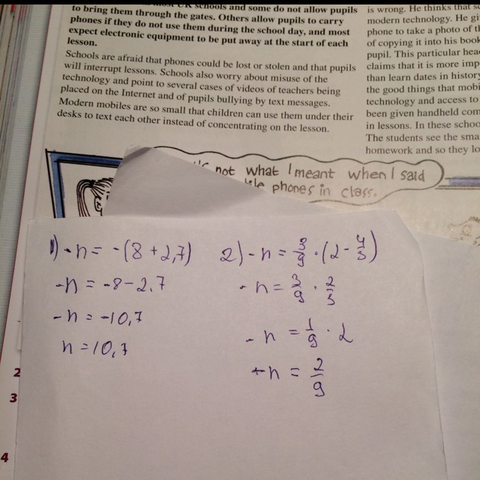 UK schools and some do not allow pupils
to bring them through the gates. Others allow pupils to carry
phones if they do not use them during the school day, and most
expect electronic equipment to be put away at the start of each
lesson.
Schools are afraid that phones could be lost or stolen and that pupils
will interrupt lessons. Schools also worry about misuse of the
technology and point to several cases of videos of teachers being
placed on the Internet and of pupils bullying by text messages.
Modern mobiles are so small that children can use them under their
desks to text each other instead of concentrating on the lesson.
is wrong. He thinks that
modern technology. He
phone to take a photo of
of copying it into his
pupil. This particular
claims that it is more
than learn dates in history
the good things that
technology and access to
been given handheld
in lessons. In these
The students see the
homework and so they
not what I meant when I said
phones in class.
1) -n = -(8 + 2,7)
-n = -8 - 2.7
-n = -10,7
n = 10,7
2) -n = 3/9 · (2 - 4/3)
-n = 3/9 · 2/3
-n = 1/9 · 2
-n = 2/9
2
3
4